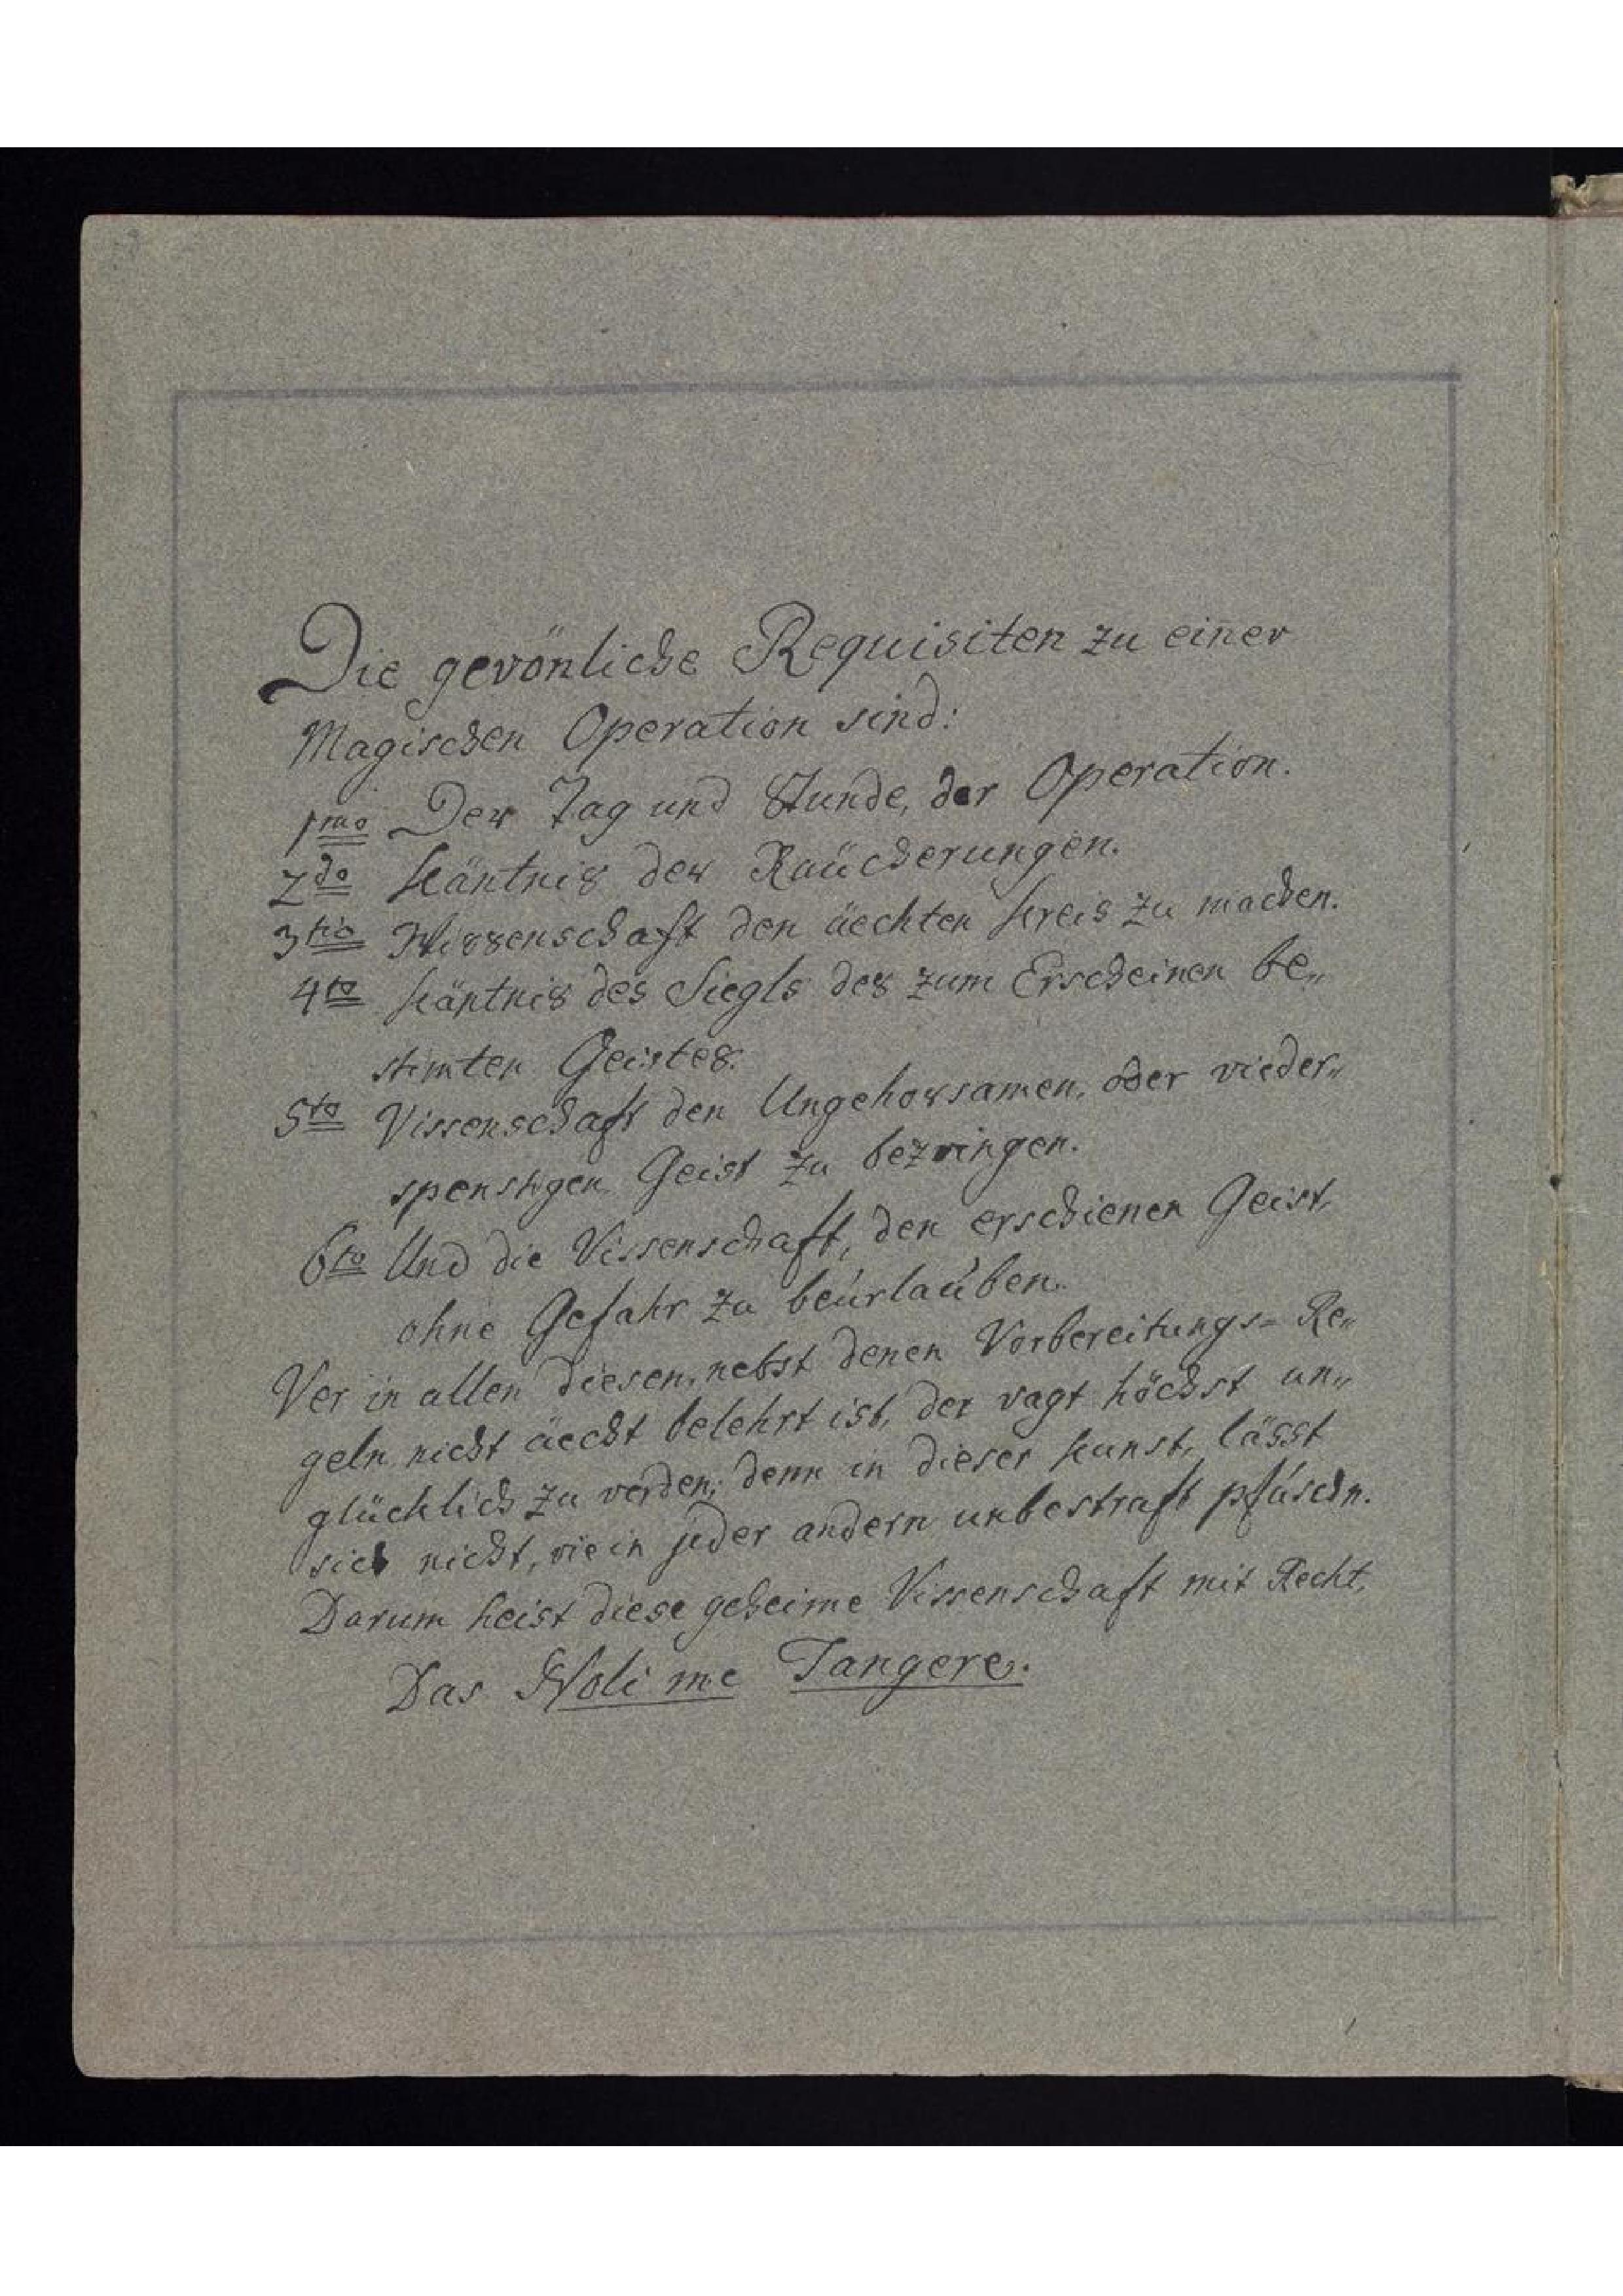 Die gevönliche Requisiten zu einer
Magischen Operation sind:
1mo Der Tag und Stunde, der Operation.
2do Käntnis der Raücherungen.
3tio Wissenschaft den äechten Kreis zu machen.
4to Käntnis des Siegls des zum Erscheinen be„
stimten Geistes.
5to Vissenschaft den Ungehorsamen, oder vieder„
spenstigen Geist zu bezvingen.
6to Und die Vissenschaft, den erschienen Geist,
ohne Gefahr zu beúrlaúben.
Ver in allen diesen, nebst denen Vorbereitungs= Re„
geln nicht äecht belehrt ist, der vagt höchst un„
glücklich zu verden; denn in dieser Kunst, lässt
sich nicht, vie in jeder andern unbestraft pfúschn.
Darum heist diese geheime Vissenschaft mit Recht,
Das Noli me Tangere.